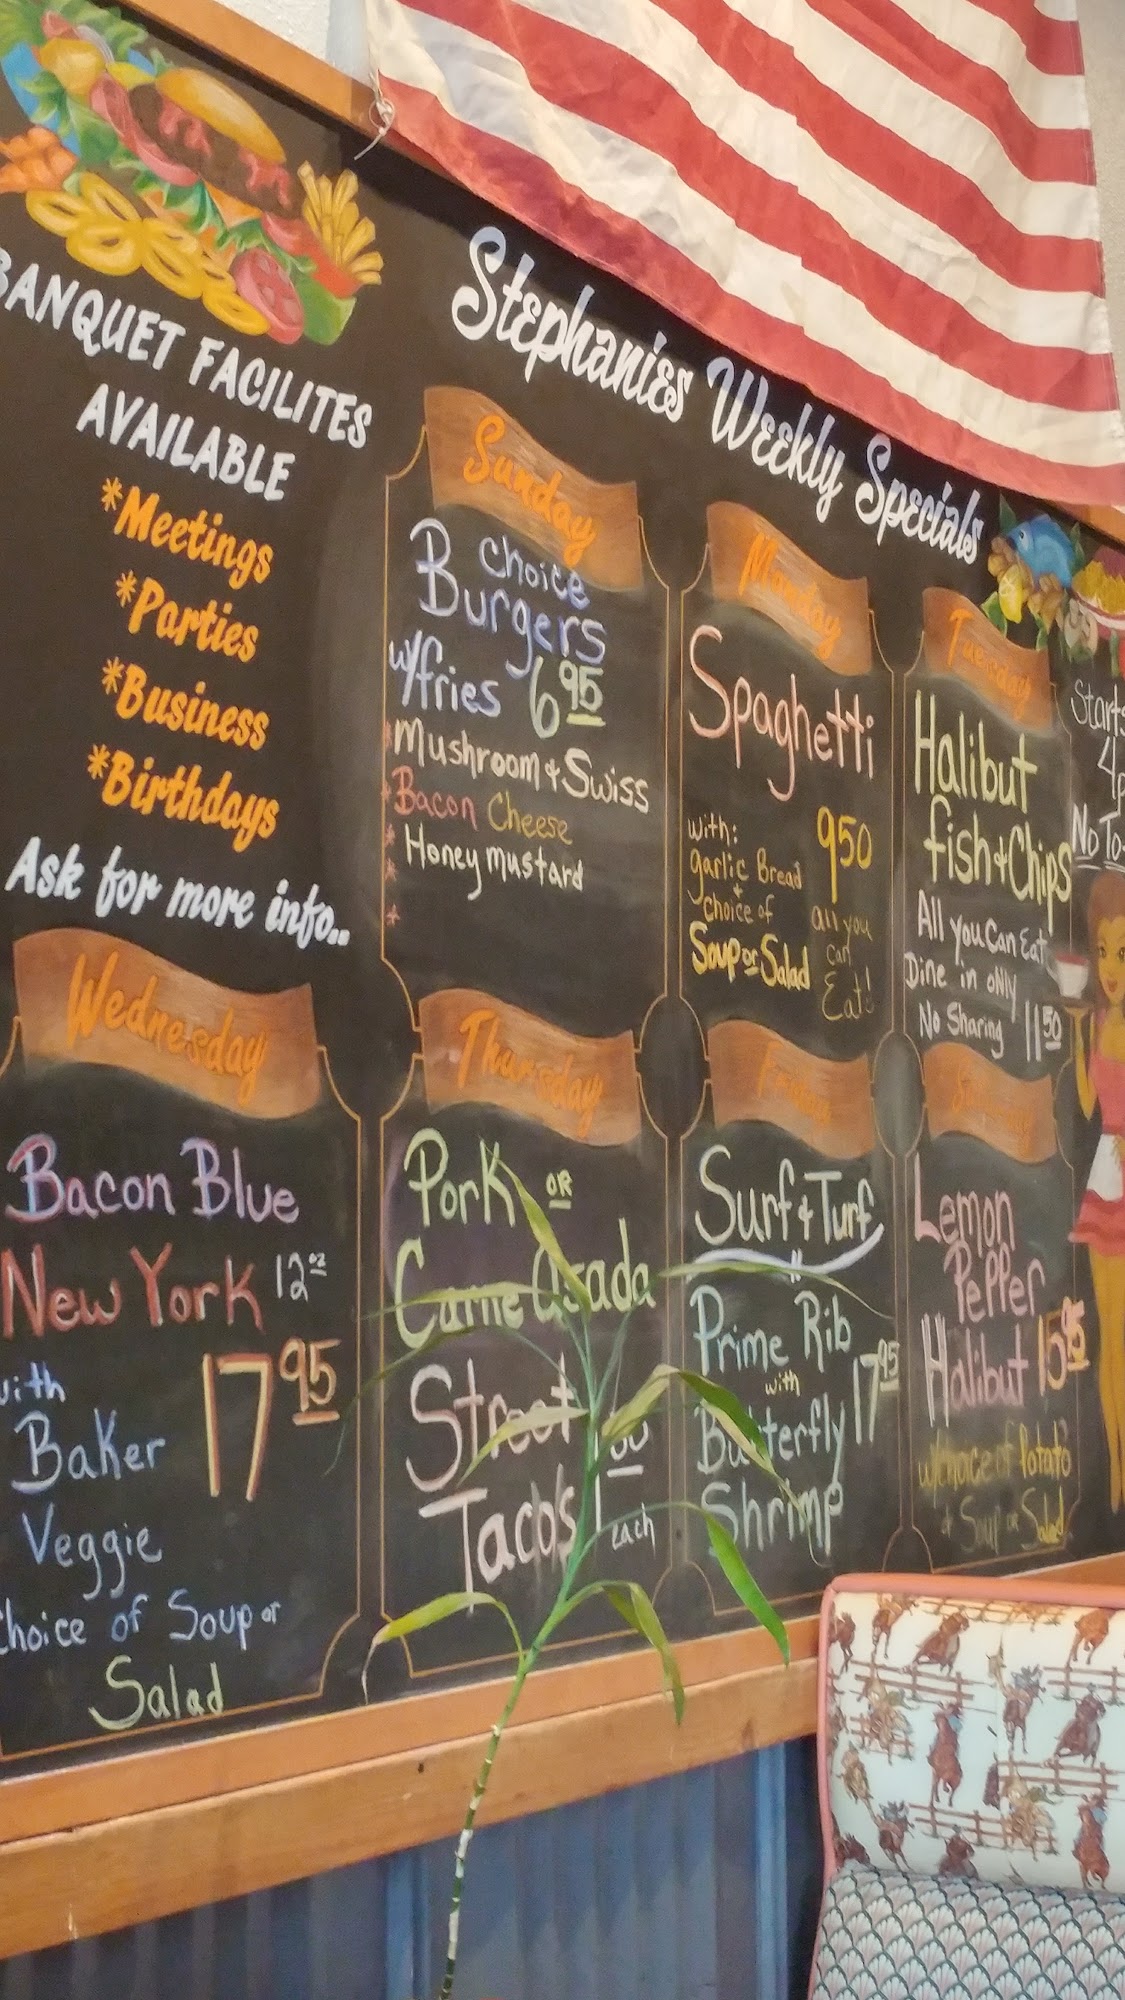 BANQUET FACILITES
AVAILABLE
*Meetings
*Parties
*Business
*Birthdays
Ask for more info..
Stephanies Weekly Specials
Sunday
Choice
Burgers
w/fries 6 95
*Mushroom & Swiss
*Bacon Cheese
* Honey mustard
*
*
Monday
Spaghetti
with: 9 50
garlic Bread
+
choice of
Soup or Salad
all you
can
Eat!
Tuesday
Halibut
fish & Chips
All you Can Eat
Dine in only
No Sharing 11 50
Starts
4p
No To
Wednesday
Bacon Blue
New York 12 oz
with 17 95
Baker
Veggie
Choice of Soup or
Salad
Thursday
Pork or
Carne Asada
Street
Taco's 1 00
each
Friday
Surf & Turf
"
Prime Rib
with 17 95
Butterfly
Shrimp
Lemon
Pepper
Halibut 15 95
w/choice of Potato
& Soup or Salad